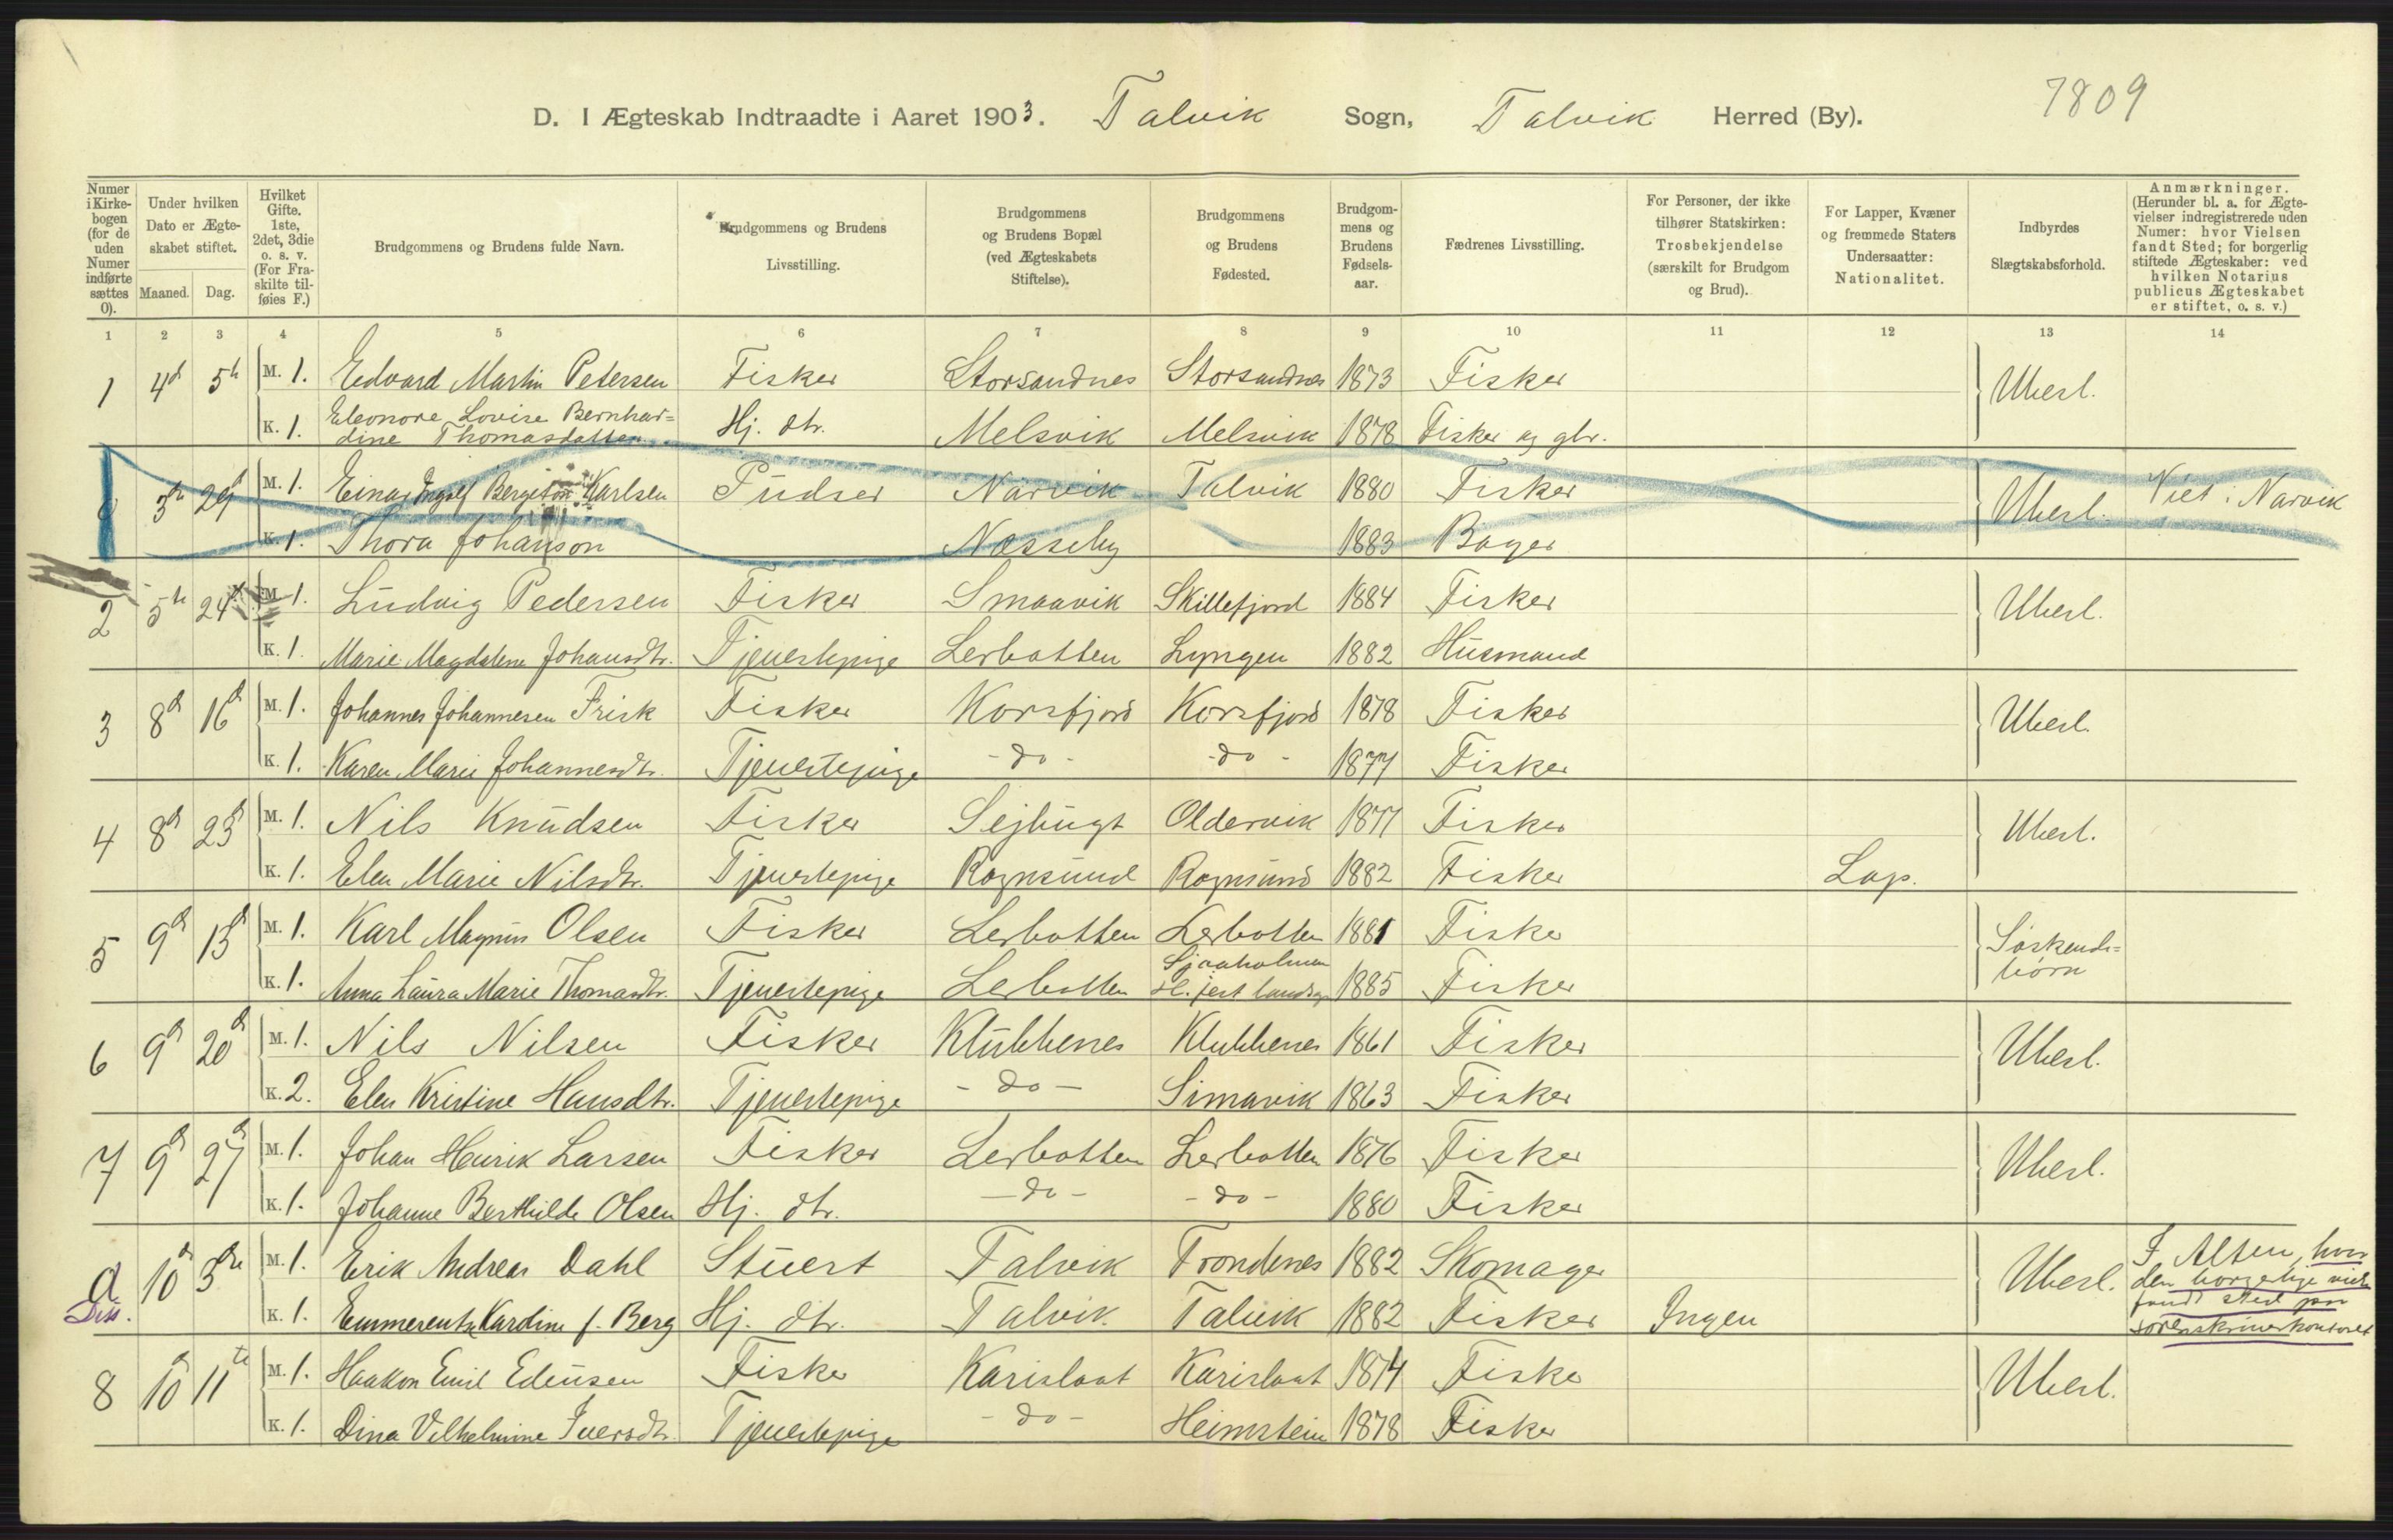 7809
D. I Ægteskab Indtraadte i Aaret 1903. Talvik Sogn, Talvik Herred (By).
Numer i Kirkebogen (for de uden Numer indførte sættes 0).
Under hvilken Dato er Ægteskabet stiftet. Maaned. Dag.
Hvilket Gifte. 1ste, 2det, 3die o. s. v. (For Fraskilte tilføies F.)
Brudgommens og Brudens fulde Navn.
Brudgommens og Brudens Livsstilling.
Brudgommens og Brudens Bopæl (ved Ægteskabets Stiftelse).
Brudgommens og Brudens Fødested.
Brudgommens og Brudens Fødselsaar.
Fædrenes Livsstilling.
For Personer, der ikke tilhører Statskirken: Trosbekjendelse (særskilt for Brudgom og Brud).
For Lapper, Kvæner og fremmede Staters Undersaatter: Nationalitet.
Indbyrdes Slægtskabsforhold.
Anmærkninger. (Herunder bl. a. for Ægtevielser indregistrerede uden Numer: hvor Vielsen fandt Sted; for borgerlig stiftede Ægteskaber: ved hvilken Notarius publicus Ægteskabet er stiftet, o. s. v.)
1 2 3 4 5 6 7 8 9 10 11 12 13 14
1 4d 5te M. 1. Edvard Martin Petersen Fisker Storsandnes Storsandnes 1873 Fisker Ubesl.
K. 1. Eleonore Lovise Bernhar=
dine Thomasdatter Hj. dtr. Melsvik Melsvik 1878 Fisker og gbr.
3 29 M. 1. Einar Ingolf Bergeton Karlsen Pudser Narvik Talvik 1880 Fisker Ubesl. Viet i Narvik
K. 1. Thora Johanson Næsseby 1883 Bager
2 5te 24 M. 1. Ludvig Pedersen Fisker Smaavik Skillefjord 1884 Fisker Ubesl.
K. 1. Marie Magdalene Johansdtr. Tjenestepige Lerbotten Lyngen 1882 Husmand
3 8d 16d M. 1. Johannes Johannesen Frisk Fisker Korsfjord Korsfjord 1878 Fisker Ubesl.
K. 1. Karen Marie Johannesdtr. Tjenestepige - do - - do - 1877 Fisker
4 8d 23d M. 1. Nils Knudsen Fisker Sejbugt Oldervik 1877 Fisker Ubesl.
K. 1. Elen Marie Nilsdtr. Tjenestepige Rognsund Rognsund 1882 Fisker Lap.
5 9d 13d M. 1. Karl Magnus Olsen Fisker Lerbotten Lerbotten 1881 Fisker Søskende=
børn
K. 1. Anna Laura Marie Thomasdtr. Tjenestepige Lerbotten Sjaaholmen 1885 Fisker
6 9d 20d M. 1. Nils Nilsen Fisker Klubbenes Klubbenes 1861 Fisker Ubesl.
K. 2. Elen Kristine Hansdtr. Tjenestepige - do - Simavik 1863 Fisker
7 9d 27d M. 1. Johan Henrik Larsen Fisker Lerbotten Lerbotten 1876 Fisker Ubesl.
K. 1. Johanne Berthilde Olsen Hj. dtr. - do - - do - 1880 Fisker
a 10d 3die M. 1. Erik Andreas Dahl Stuert Talvik Trondenes 1882 Skomager Ubesl. I Alten, hvor
den borgerlige vielse
fandt sted paa
sorenskriverkontoret
Diss. K. 1. Emmerentze Kardine f. Berg Hj. dtr. Talvik Talvik 1882 Fisker Ingen
8 10d 11te M. 1. Haakon Emil Edensen Fisker Karislaat Karislaat 1874 Fisker Ubesl.
K. 1. Dina Vilhelmine Iversdtr. Tjenestepige - do - Heimstein 1878 Fisker